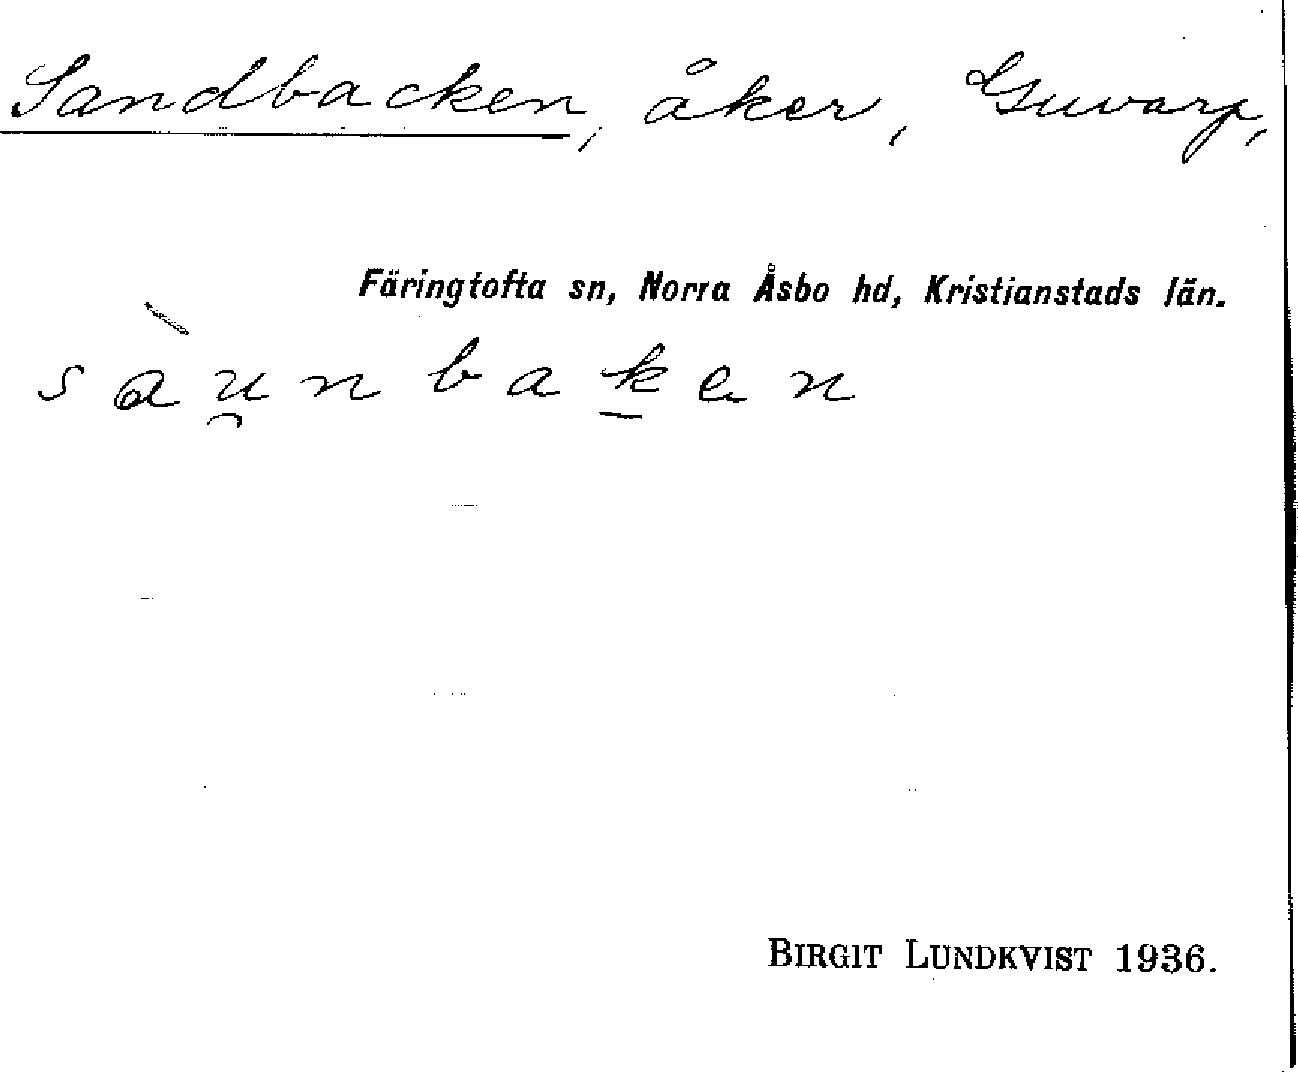 Sandbacken, åker, Guvarp,
Färingtofta sn, Norra Åsbo hd, Kristianstads län.
sàu̯nbak̲en
BIRGIT LUNDKVIST 1936.